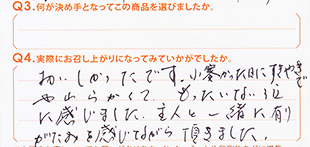 Q3.何が決め手となってこの商品を選びましたか。
Q4.実際にお召し上がりになってみていかがでしたか。
おいしかったです。小寒かった日にすきやきで
やわらかくて、もったいない位
に感じました。主人と一緒に有り
がたみを感じながら頂きました。